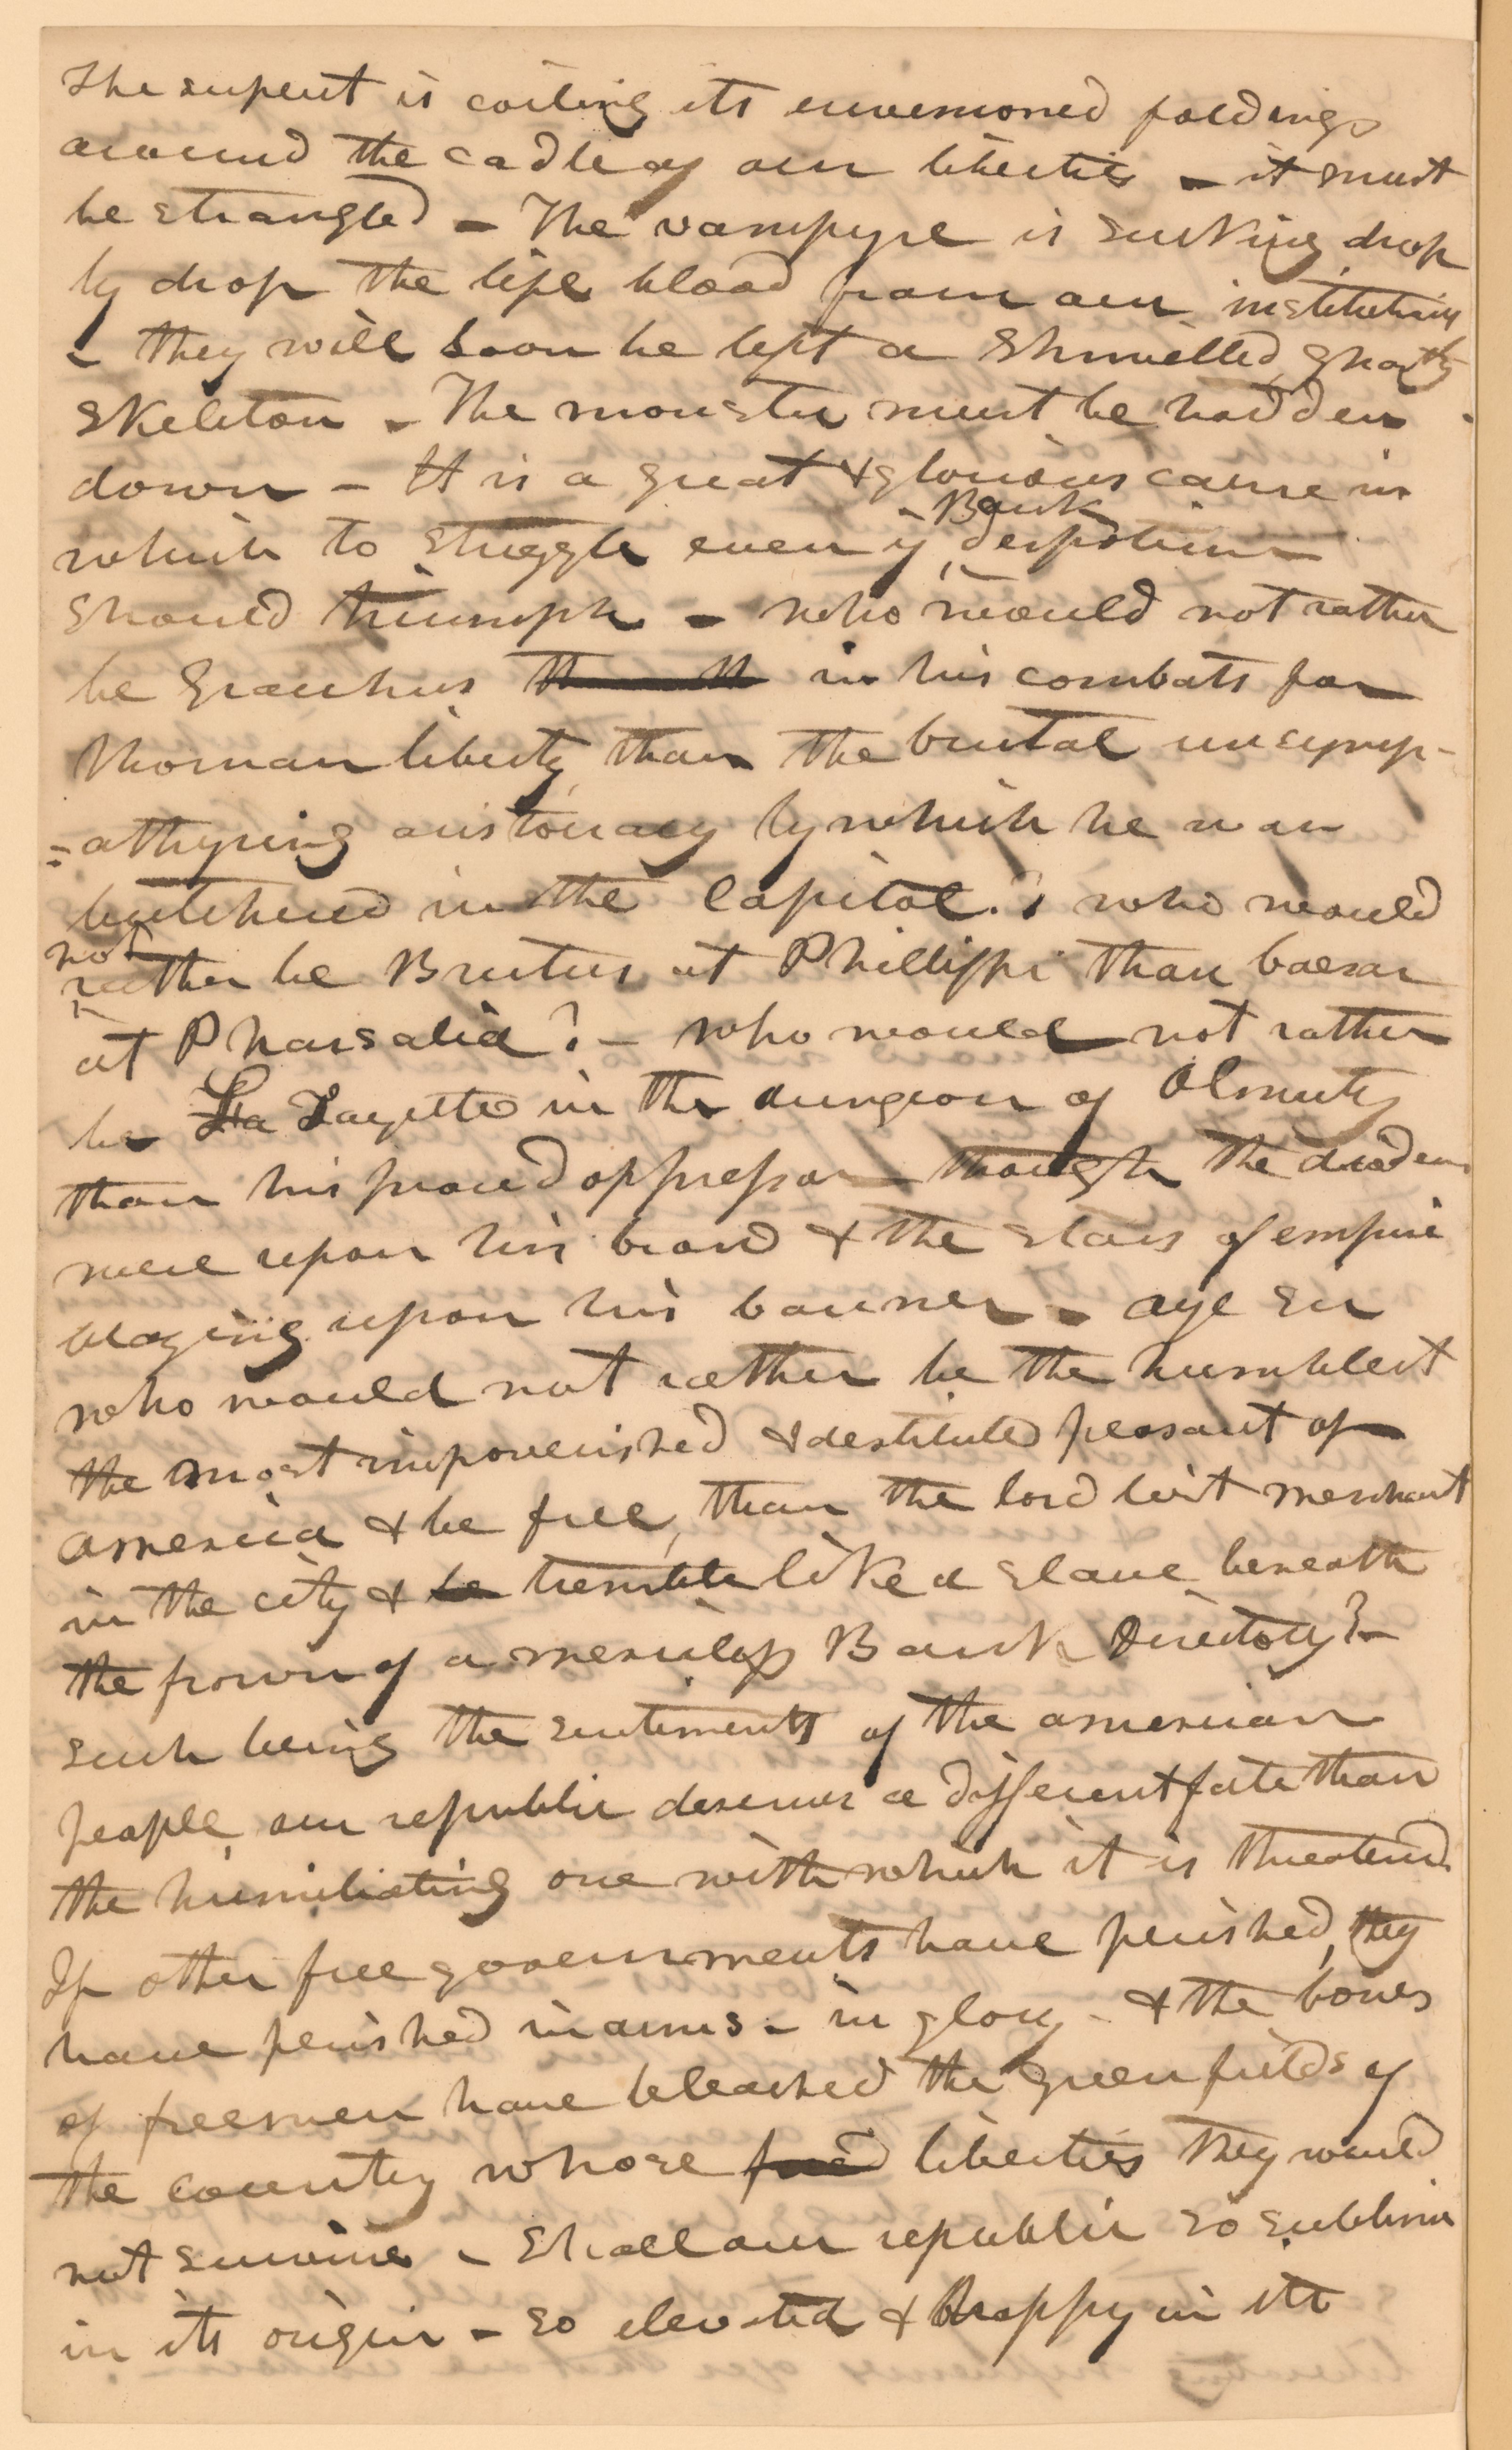 The serpent is coiling its envenomed foldings
around the cadle of our liberties - it must
be strangled - The vampyre is sucking drop
by drop the life blood from our institutions
- they will soon be left a shrivelled, ghastly
skeleton - The monster must be hodden
down - It is a great & glorious cause in
which to struggle even if Bank despotism
should triumph - who would not rather
be Gracchus in his combats for
Roman liberty than the brutal unsymp-
=athyzing aristocracy by which he was
butchered in the Capitol.? who would
not rather be Brutus at Phillippi than Caesar
at Pharsalia? - who would not rather
be La Fayette in the dungeon of Olmutz
than his proud oppressor though the diadem
were upon his brow & the stars of empire
blazing upon his banner - aye sir
who would not rather be the humblest
the most impoverished & destitute peasant of
America & be free, than the lordliest merchant
in the city & be tremble like a slave beneath
the frown of a merciless Bank Directory? -
such being the sentiments of the american
people our republic deserves a different fate than
the humiliating one with which it is threatened.
If other free governments have perished, they
have perished in arms - in glory - & the bones
of freemen have bleached the green fields of
the country whose liberties they would
not survive - Shall our republic so sublime
in its origin - so elevated & happy in its